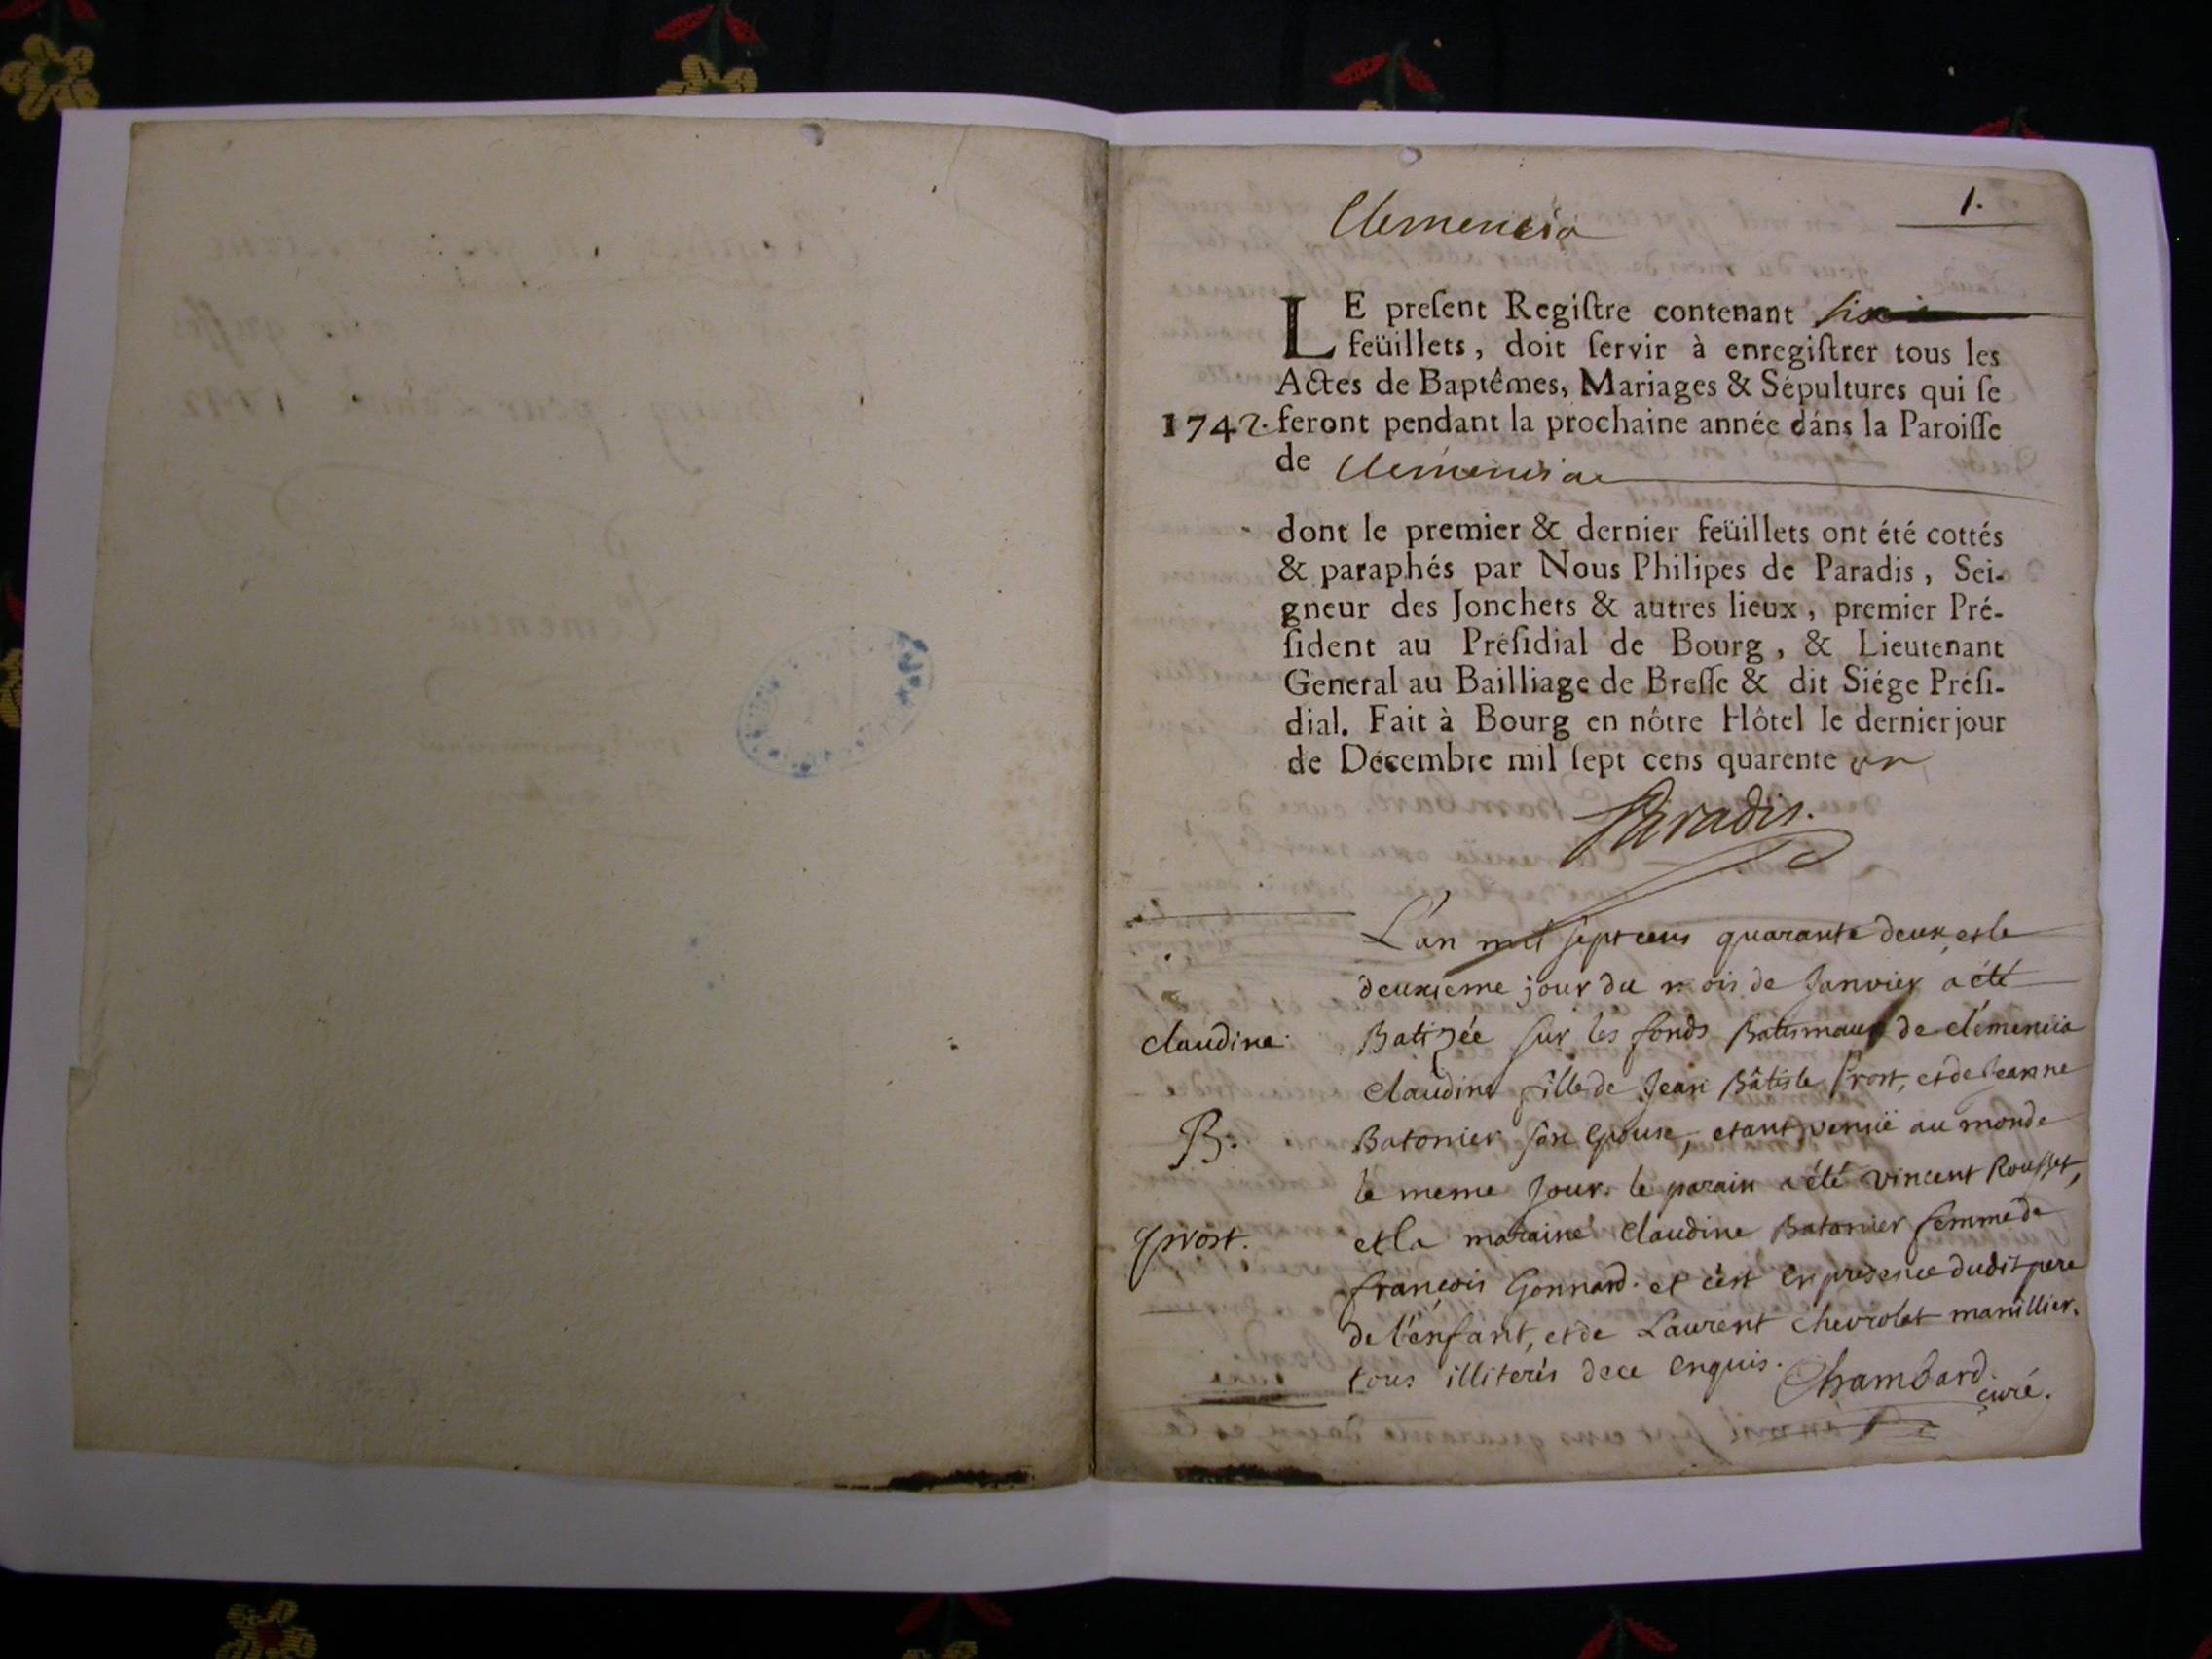 Clemencia
1.
LE preſent Regiſtre contenant six
feüillets, doit ſervir à enregiſtrer tous les
Actes de Baptêmes, Mariages & Sépultures qui ſe
1742. feront pendant la prochaine année dáns la Paroiſſe
de Clemencia
dont le premier & dernier feüillets ont été cottés
& paraphés par Nous Philipes de Paradis, Sei-
gneur des Jonchets & autres lieux, premier Pré-
ſident au Préſidial de Bourg, & Lieutenant
General au Bailliage de Breſſe & dit Siége Préſi-
dial. Fait à Bourg en nôtre Hôtel le dernier jour
de Décembre mil ſept cens quarente un
Paradis.
L'an mil sept cens quarante deux, et le
deuxieme jour du mois de Janvier a été
claudine Batizée sur les fonds Batismaux de clémencia
claudine fille de Jean Bâtiste Prost, et de Jeanne
B. Batonier son Epouse, etant venüe au monde
le meme Jour. le parain a été vincent Rousset,
prost. et la maraine claudine Batonier femme de
françois Gonnard. et c'est en presence dudit pere
de l'enfant, et de Laurent chevrolat manillier.
tous illiterés de ce Enquis. Chambard
curé.